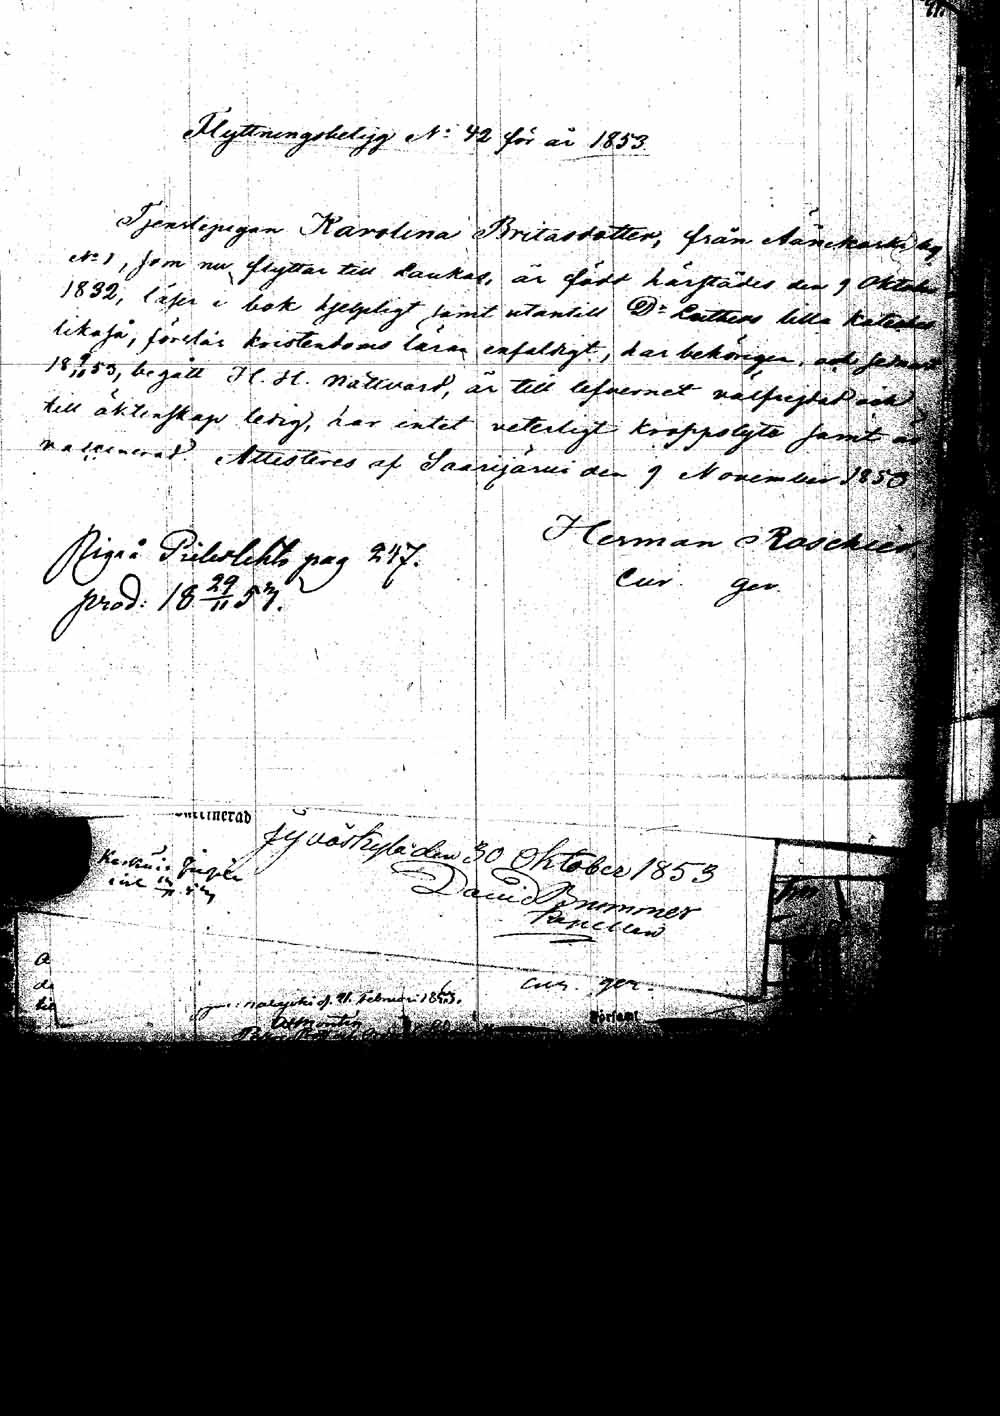 Flyttningsbetyg No: 42 för år 1853.
Tjenstepigan Karolina Britasdotter, från Äänekoski by
No 1, som nu flyttar till Laukas, är född härstädes den 9 Oktober
1832, läser i bok hjelpligt samt utantill Dr Luthers lilla Kateches
likaså, förstår kristendoms läran enfaldigt, har behörigen, och sednast
18 9/11 53, begått H. H. Nattvard, är till lefvernet välfrejdad och
till äktenskap ledig, har intet veterligt kroppslyte samt är
vaccinerad. Attesteras af Saarijärvi den 9 November 1853
Herman Roschier
Cur. ger.
pag 247.
prod: 18 29/11 53.
cinerad
Jyväskylä den 30 Oktober 1853
David Brummer
Kapellan
cur. ger.
d. 21 Februari 1853.